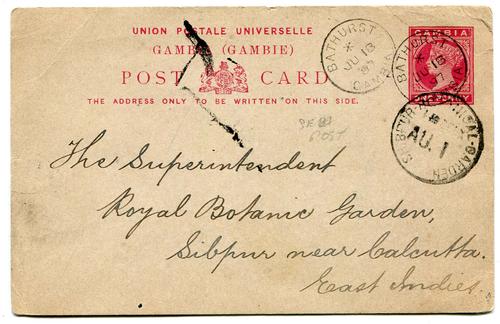 UNION POSTALE UNIVERSELLE
GAMBIA (GAMBIE)
POST CARD
THE ADDRESS ONLY TO BE WRITTEN ON THIS SIDE.
BATHURST
JU 18
97
GAMBIA
BATHURST
JU 18
97
GAMBIA
PENNY
BOTANICAL-GARDEN
AU. 1
POST
The Superintendent
Royal Botanic Garden,
Sibpur near Calcutta.
East Indies.